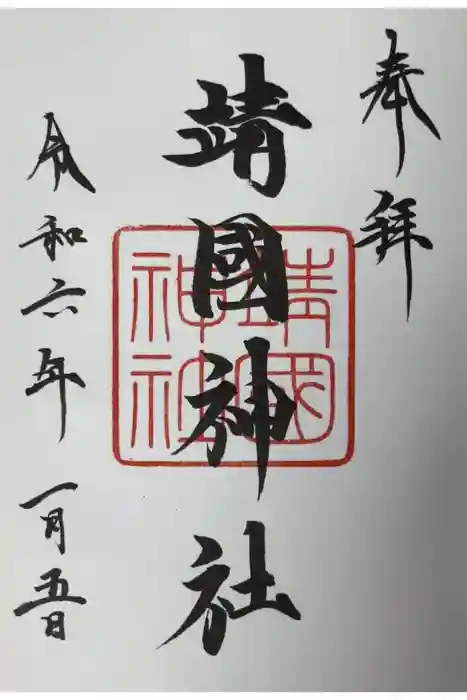 奉拝
靖國神社
靖國
神社
令和六年一月五日